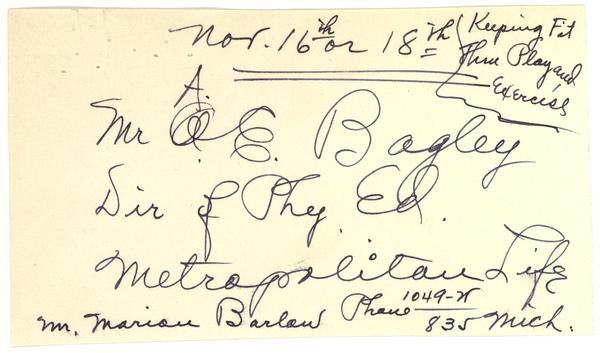 Nov. 16th or 18th
Keeping Fit
Thru Play and
Exercise
A.
Mr O. E. Bagley
Dir of Phy. Ed.
Metropolitan Life
Mr. Marion Barlow Phone 1049-W
835 Mich.